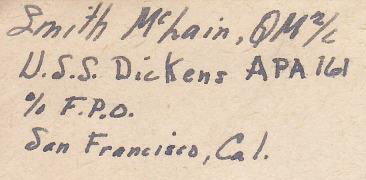 Smith McLain, QM 2/c
U.S.S. Dickens APA 161
% F.P.O.
San Francisco, Cal.